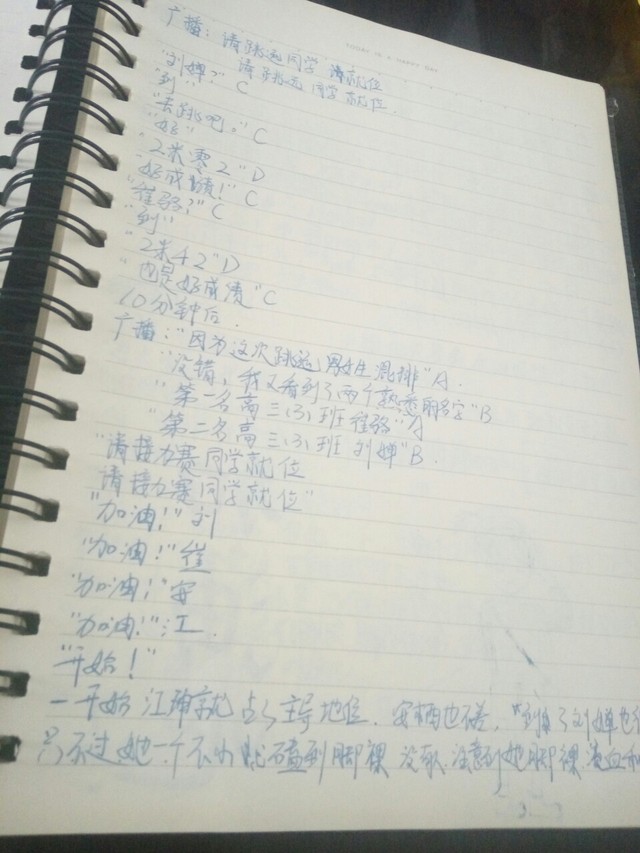 TODAY IS A HAPPY DAY
广播：请跳远同学 请就位
请跳远同学就位
"刘婵?" C
"到"
"去跳吧." C
"好"
"2米零2" D
好成绩!" C
"崔弱?" C
"到"
"2米42" D
"也是好成绩" C
10分钟后.
广播："因为这次跳远男女生混排" A.
"没错,我又看到了两个熟悉的名字" B
"第一名高三(3)班 崔弱" A
"第二名高三(3)班 刘婵" B.
"请接力赛同学就位
请接力赛同学就位"
"加油!" 刘
"加油!" 崔
"加油!" 安
"加油!" 江
"开始!"
一开始 江珅就占了主导地位. 安 也不差, 到了刘婵也
只不过,她一个不小心 磕到脚裸 没 注意到她脚裸 流血